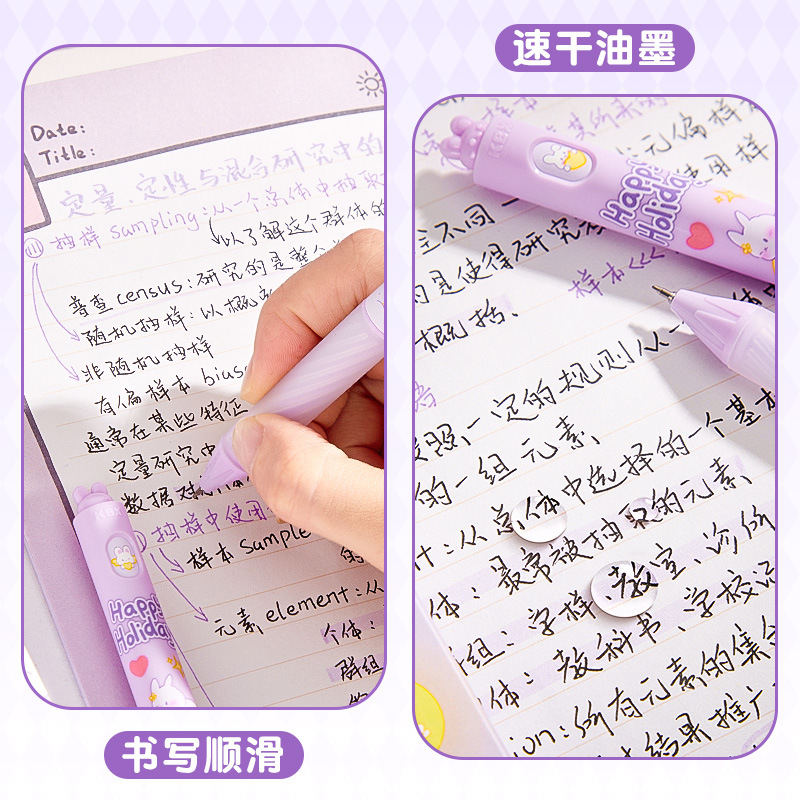 速干油墨
Date:
Title:
定量、定性与混合研究中的
(1) 抽样 sampling:从一个总体中抽取
以了解这个群体的
普查 census:研究的是整个
随机抽样:以概
非随机抽样
有偏样本 bias
通常在某些特征
定量研究中
数据
抽样中使用
样本 sample
元素 element:从
个体:
群组
KBX
Happy
Holiday
样本
其所来的
元偏样本
使用样
不同一
的是使得研究
样本<<<
概括、
按照一定的规则从一
的一组元素
t:从总体中选择的一个基本
体:最常被抽取的元素
组:字样、教室、诊所
体:教科书、学校记
ion:所有元素的集合
结果推广
Happy
Holiday
书写顺滑